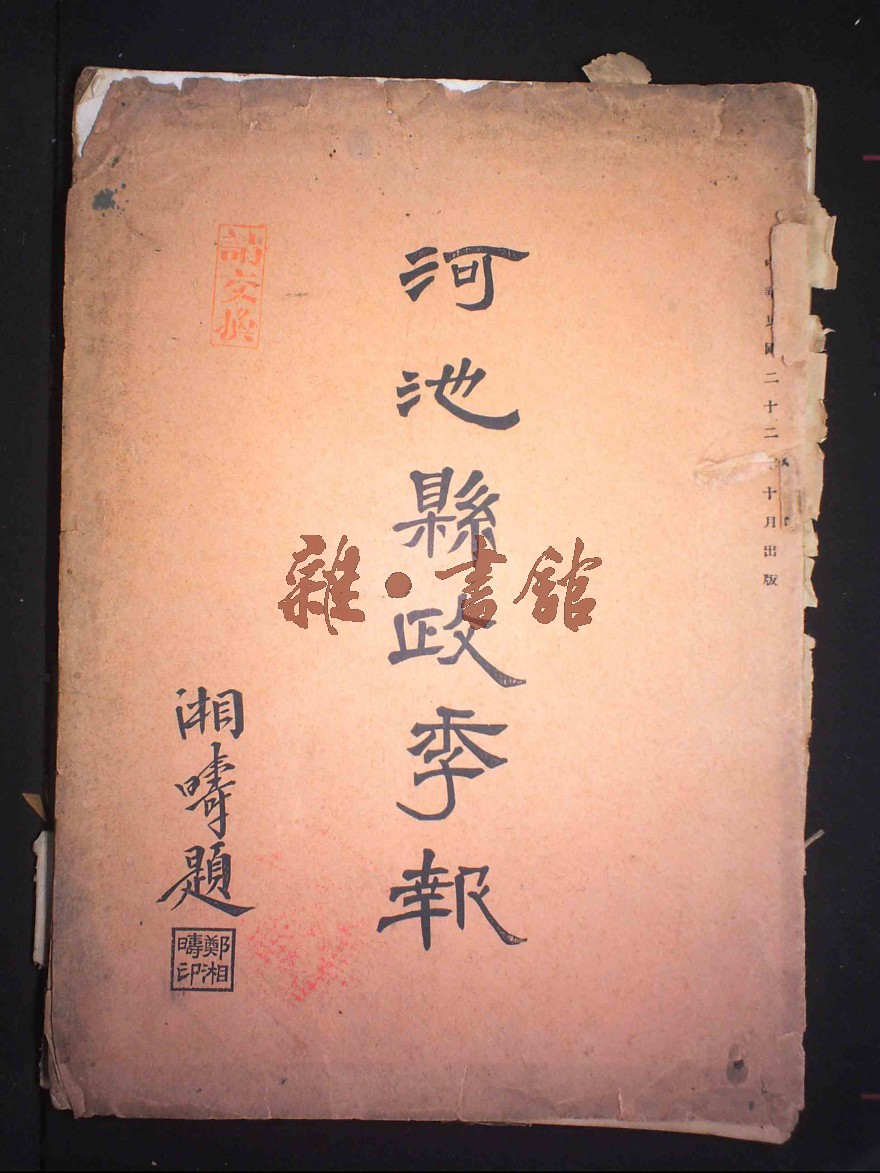 中華民國二十二年十月出版
河池縣政季報
請交換
湘疇題
鄭湘疇印
雜·書館